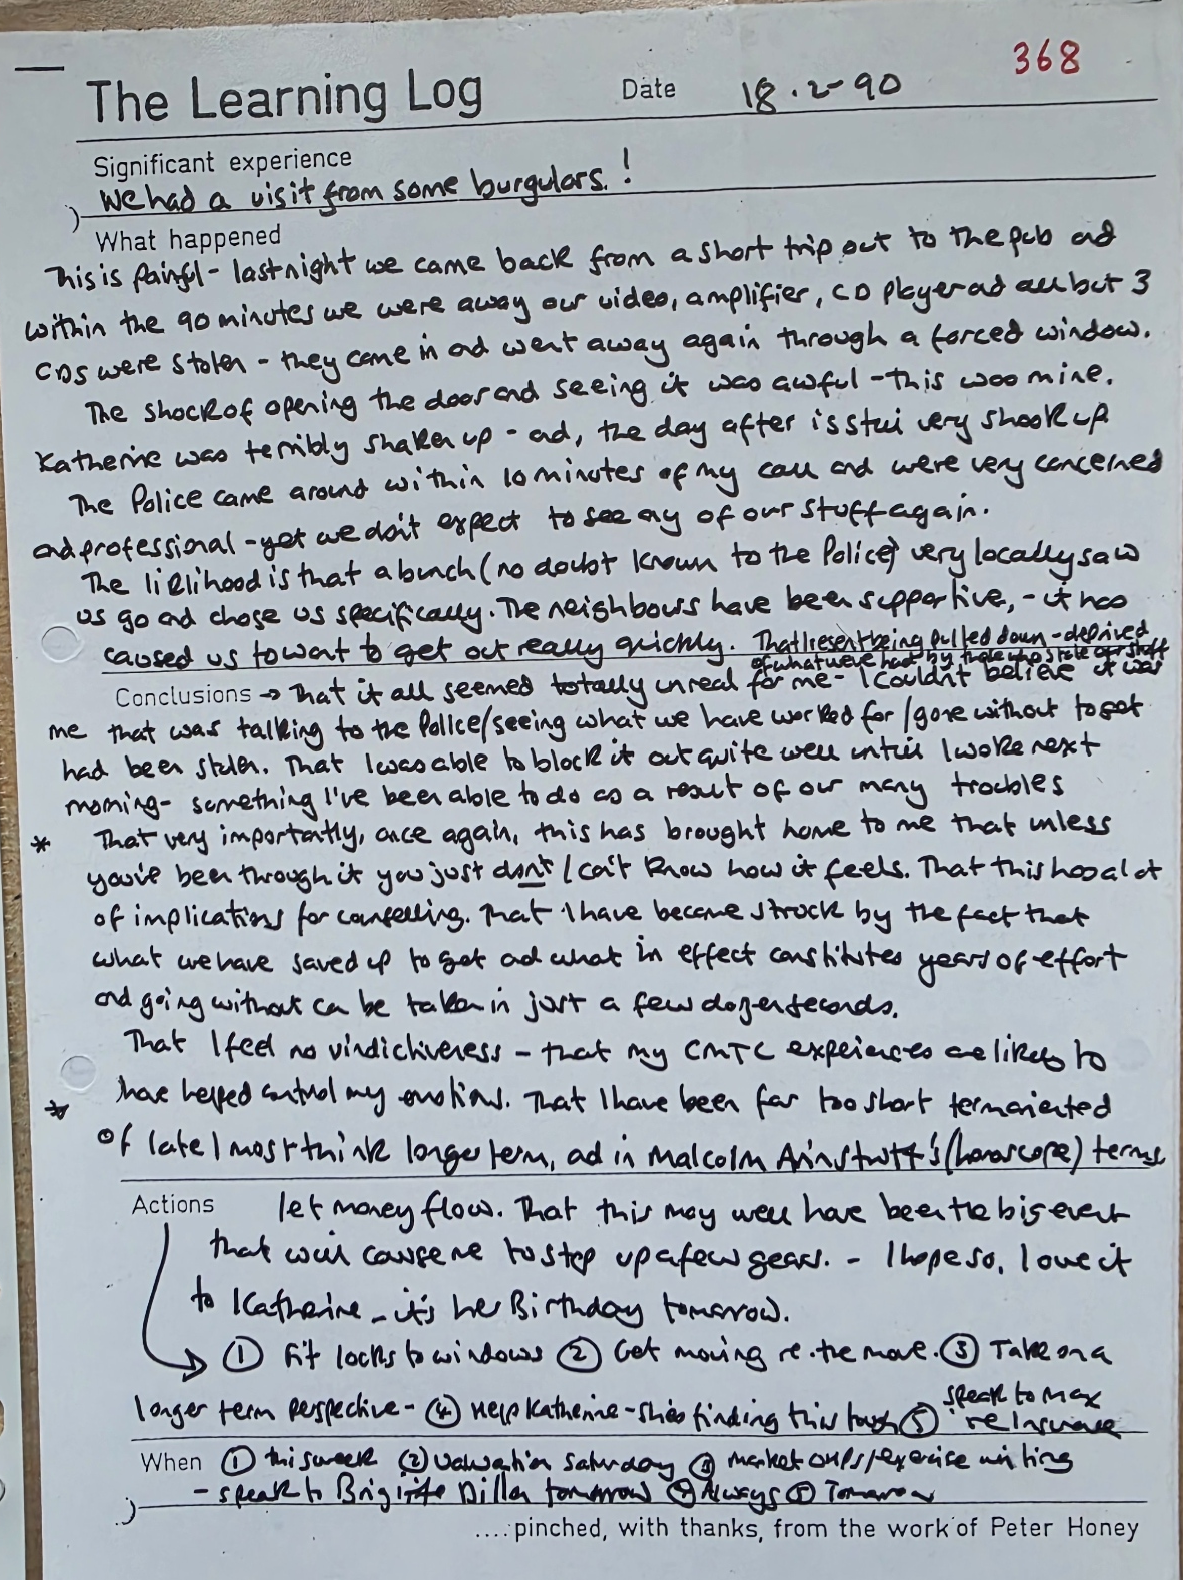 368
The Learning Log Date 18.2-90
Significant experience
We had a visit from some burgulars.!
What happened
This is painful - last night we came back from a short trip out to the pub ad
within the 90 minutes we were away our video, amplifier, CD player ad all but 3
CDs were stolen - they came in ad went away again through a forced window.
The shock of opening the door and seeing it was awful - this was mine.
Katherine was terribly shaken up - ad, the day after is still very shook up
The Police came around within 10 minutes of my call and were very concerned
and professional - yet we don't expect to see any of our stuff again.
The liklihood is that a bunch (no doubt known to the Police) very locally saw
us go and chose us specifically. The neighbours have been supportive, - it has
caused us to want to get out really quickly. That I resent being pulled down - deprived
of what we've had by those who stole our stuff
Conclusions → That it all seemed totally unreal for me - I couldn't believe it was
me that was talking to the Police/seeing what we have worked for/gone without to get
had been stolen. That I was able to block it out quite well until I woke next
morning - something I've been able to do as a result of our many troubles
* That very importantly, once again, this has brought home to me that unless
you've been through it you just don't / can't know how it feels. That this has a lot
of implications for counselling. That I have become struck by the fact that
what we have saved up to get ad what in effect constitutes years of effort
and going without can be taken in just a few dozen seconds.
That I feel no vindictiveness - that my CMTC experiences are likely to
have helped control my emotions. That I have been far too short term oriented
* of late I most think longer term, ad in Malcolm (horoscope) terms,
Actions let money flow. That this may well have been the big event
that will cause me to step up a few gears. - I hope so, I owe it
to Katherine - it's her Birthday tomorrow.
① Fit locks to windows ② Get moving re. the move. ③ Take on a
longer term perspective - ④ Help Katherine - she's finding this tough ⑤ speak to Max
re Insurance
When ① this week ② Valuation Saturday ③ market OHPs/exercise writing
- speak to Brigitte Dillon tomorrow ④ Always ⑤ Tomorrow
....pinched, with thanks, from the work of Peter Honey